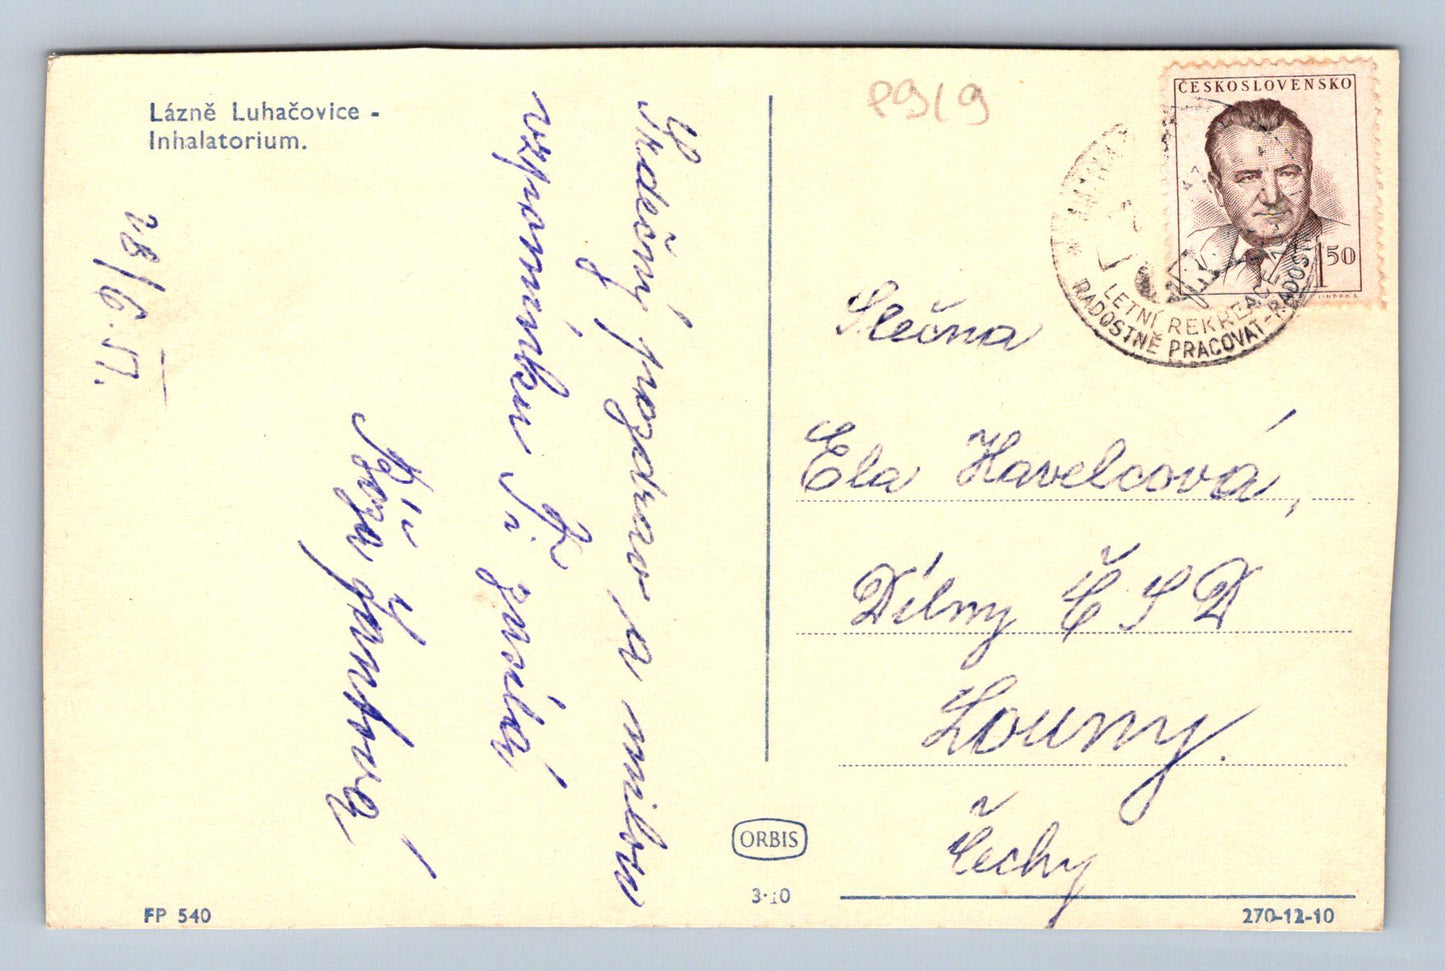 Lázně Luhačovice -
Inhalatorium.
28/6.51.
Srdečný pozdrav a milou
vzpomínku Ti zasílá
Tvá
P919
ČESKOSLOVENSKO
150
JINDRA S.
LETNÍ REKREACE
RADOSTNĚ PRACOVAT-RADOSTNĚ
Slečna
Ela Havelcová,
Dílny ČSD
Louny.
Čechy
ORBIS
3·10
FP 540
270-12-10